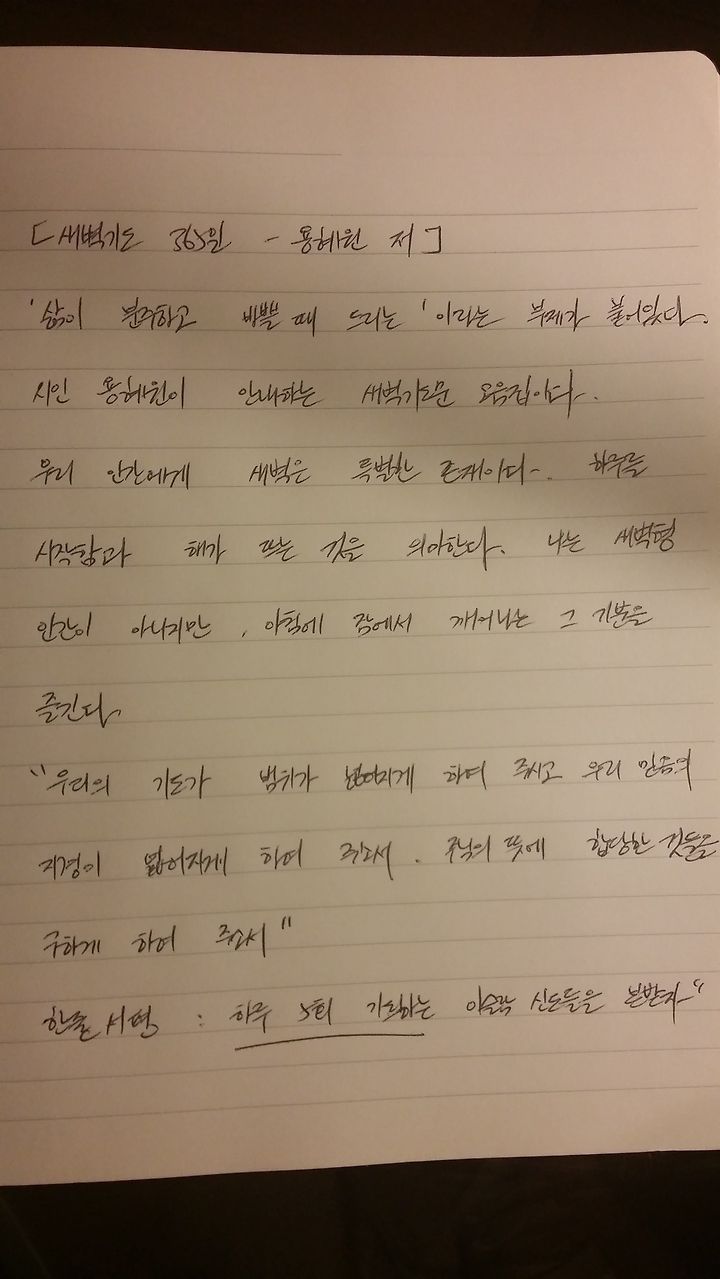 [ 새벽기도 365일 - 용혜원 저 ]
'삶이 분주하고 바쁠 때 드리는' 이라는 부제가 붙어있다.
시인 용혜원이 안내하는 새벽기도문 모음집이다.
우리 인간에게 새벽은 특별한 존재이다. 하루를
시작함과 해가 뜨는 것을 의미한다. 나는 새벽형
인간이 아니지만, 아침에 잠에서 깨어나는 그 기분을
즐긴다.
"우리의 기도가 범위가 넓어지게 하여 주시고 우리 믿음의
지경이 넓어지게 하여 주소서. 주님의 뜻에 합당한 것들을
구하게 하여 주소서"
한줄 서평 : 하루 5회 기도하는 이슬람 신도들을 본받자"